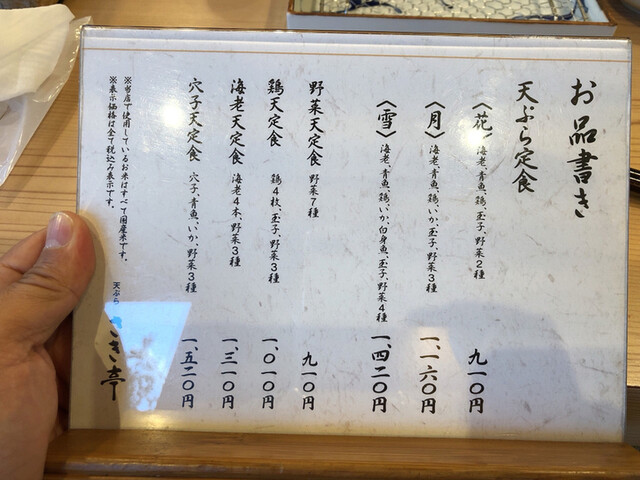 お品書き
天ぷら定食
〈花〉 海老、青魚、鶏、玉子、野菜2種 九一〇円
〈月〉 海老、青魚、鶏、いか、玉子、野菜3種 一、一六〇円
〈雪〉 海老、青魚、鶏、いか、白身魚、玉子、野菜4種 一、四二〇円
野菜天定食 野菜7種 九一〇円
鶏天定食 鶏4枚、玉子、野菜3種 一、〇一〇円
海老天定食 海老4本、野菜3種 一、三一〇円
穴子天定食 穴子、青魚、いか、野菜3種 一、五二〇円
※当店で使用しているお米はすべて国産米です。
※表示価格は全て税込み表示です。
天ぷら
き亭